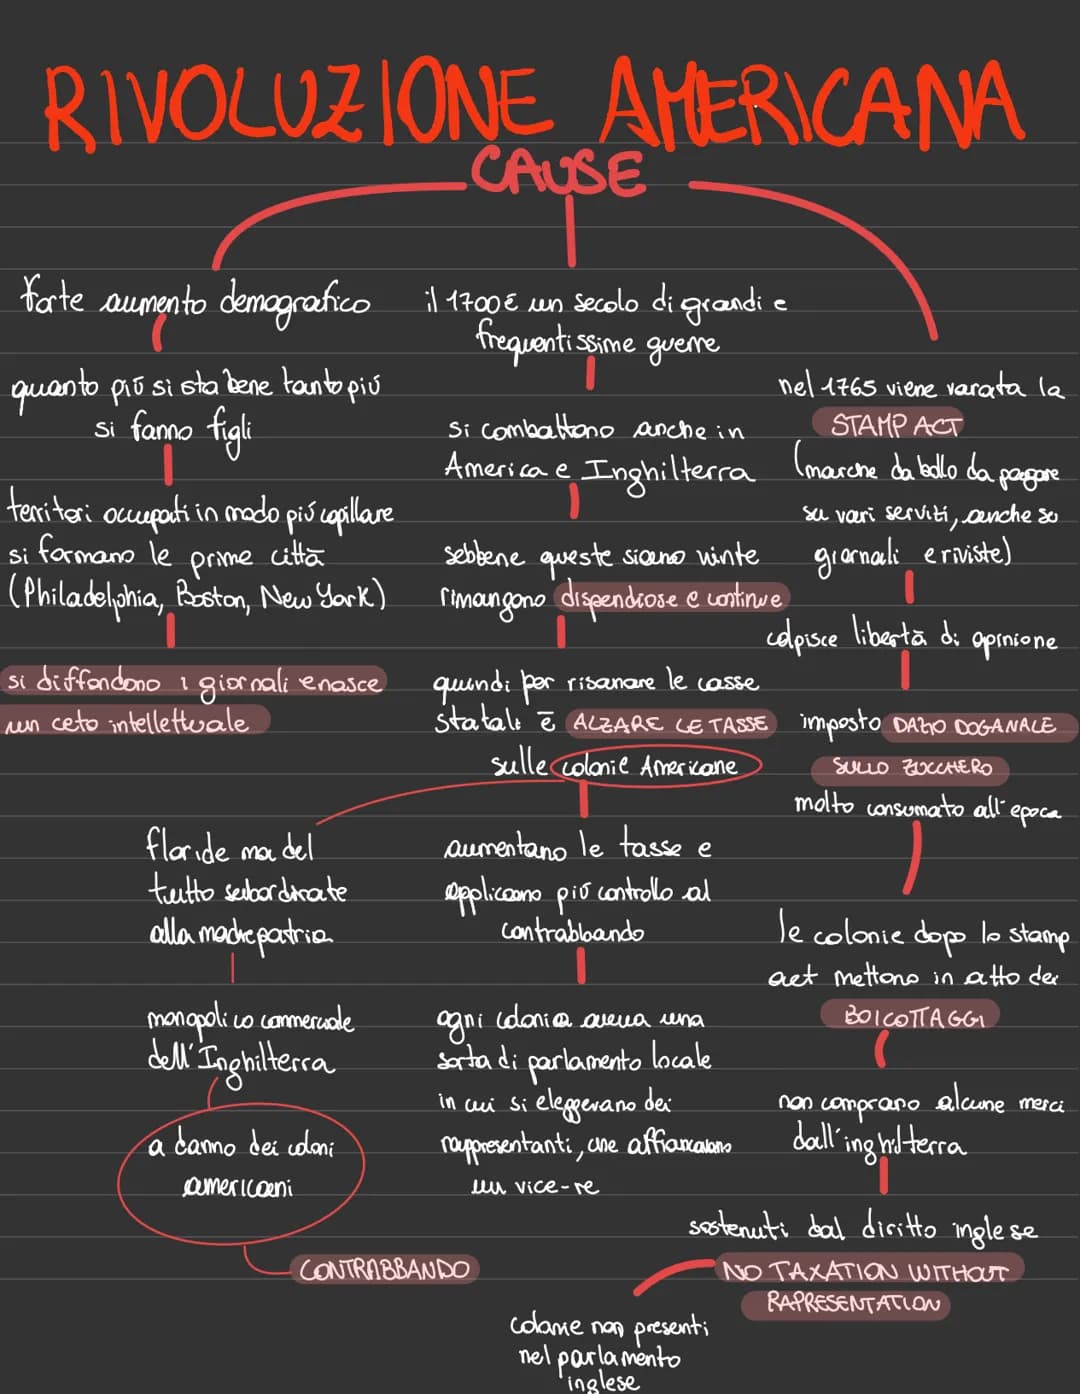 RIVOLUZIONE AMERICANA
CAUSE
forte aumento demografico
quanto più si sta bene tanto più
si fanno figli
territori occupati in modo più capillare
si formano le prime città
(Philadelphia, Boston, New York)
si diffondono i giornali e nasce
un ceto intellettuale
il 1700 è un secolo di grandi e
frequentissime guerre
si combattono anche in
America e Inghilterra
sebbene queste siano vinte
rimangono dispendiose e continue
quindi per risanare le casse
statali è ALZARE LE TASSE
sulle colonie Americane
floride ma del
tutto subordinate
alla madrepatria
monopolio commerciale
dell'Inghilterra
a danno dei coloni
americani
CONTRABBANDO
aumentano le tasse e
applicano più controllo al
contrabbando
ogni colonia aveva una
sorta di parlamento locale
in cui si eleggevano dei
rappresentanti, che affiancavano
un vice-re
nel 1765 viene varata la
STAMP ACT
(marche da bollo da pagare
su vari servizi, anche su
giornali e riviste)
colpisce libertà di opinione
imposto DAZIO DOGANALE
SULLO ZUCCHERO
molto consumato all'epoca
le colonie dopo lo stamp
act mettono in atto dei
BOICOTTAGGI
non comprano alcune merci
dall'inghilterra
sostenuti dal diritto inglese
NO TAXATION WITHOUT
RAPRESENTATION
colonie non presenti
nel parlamento
inglese